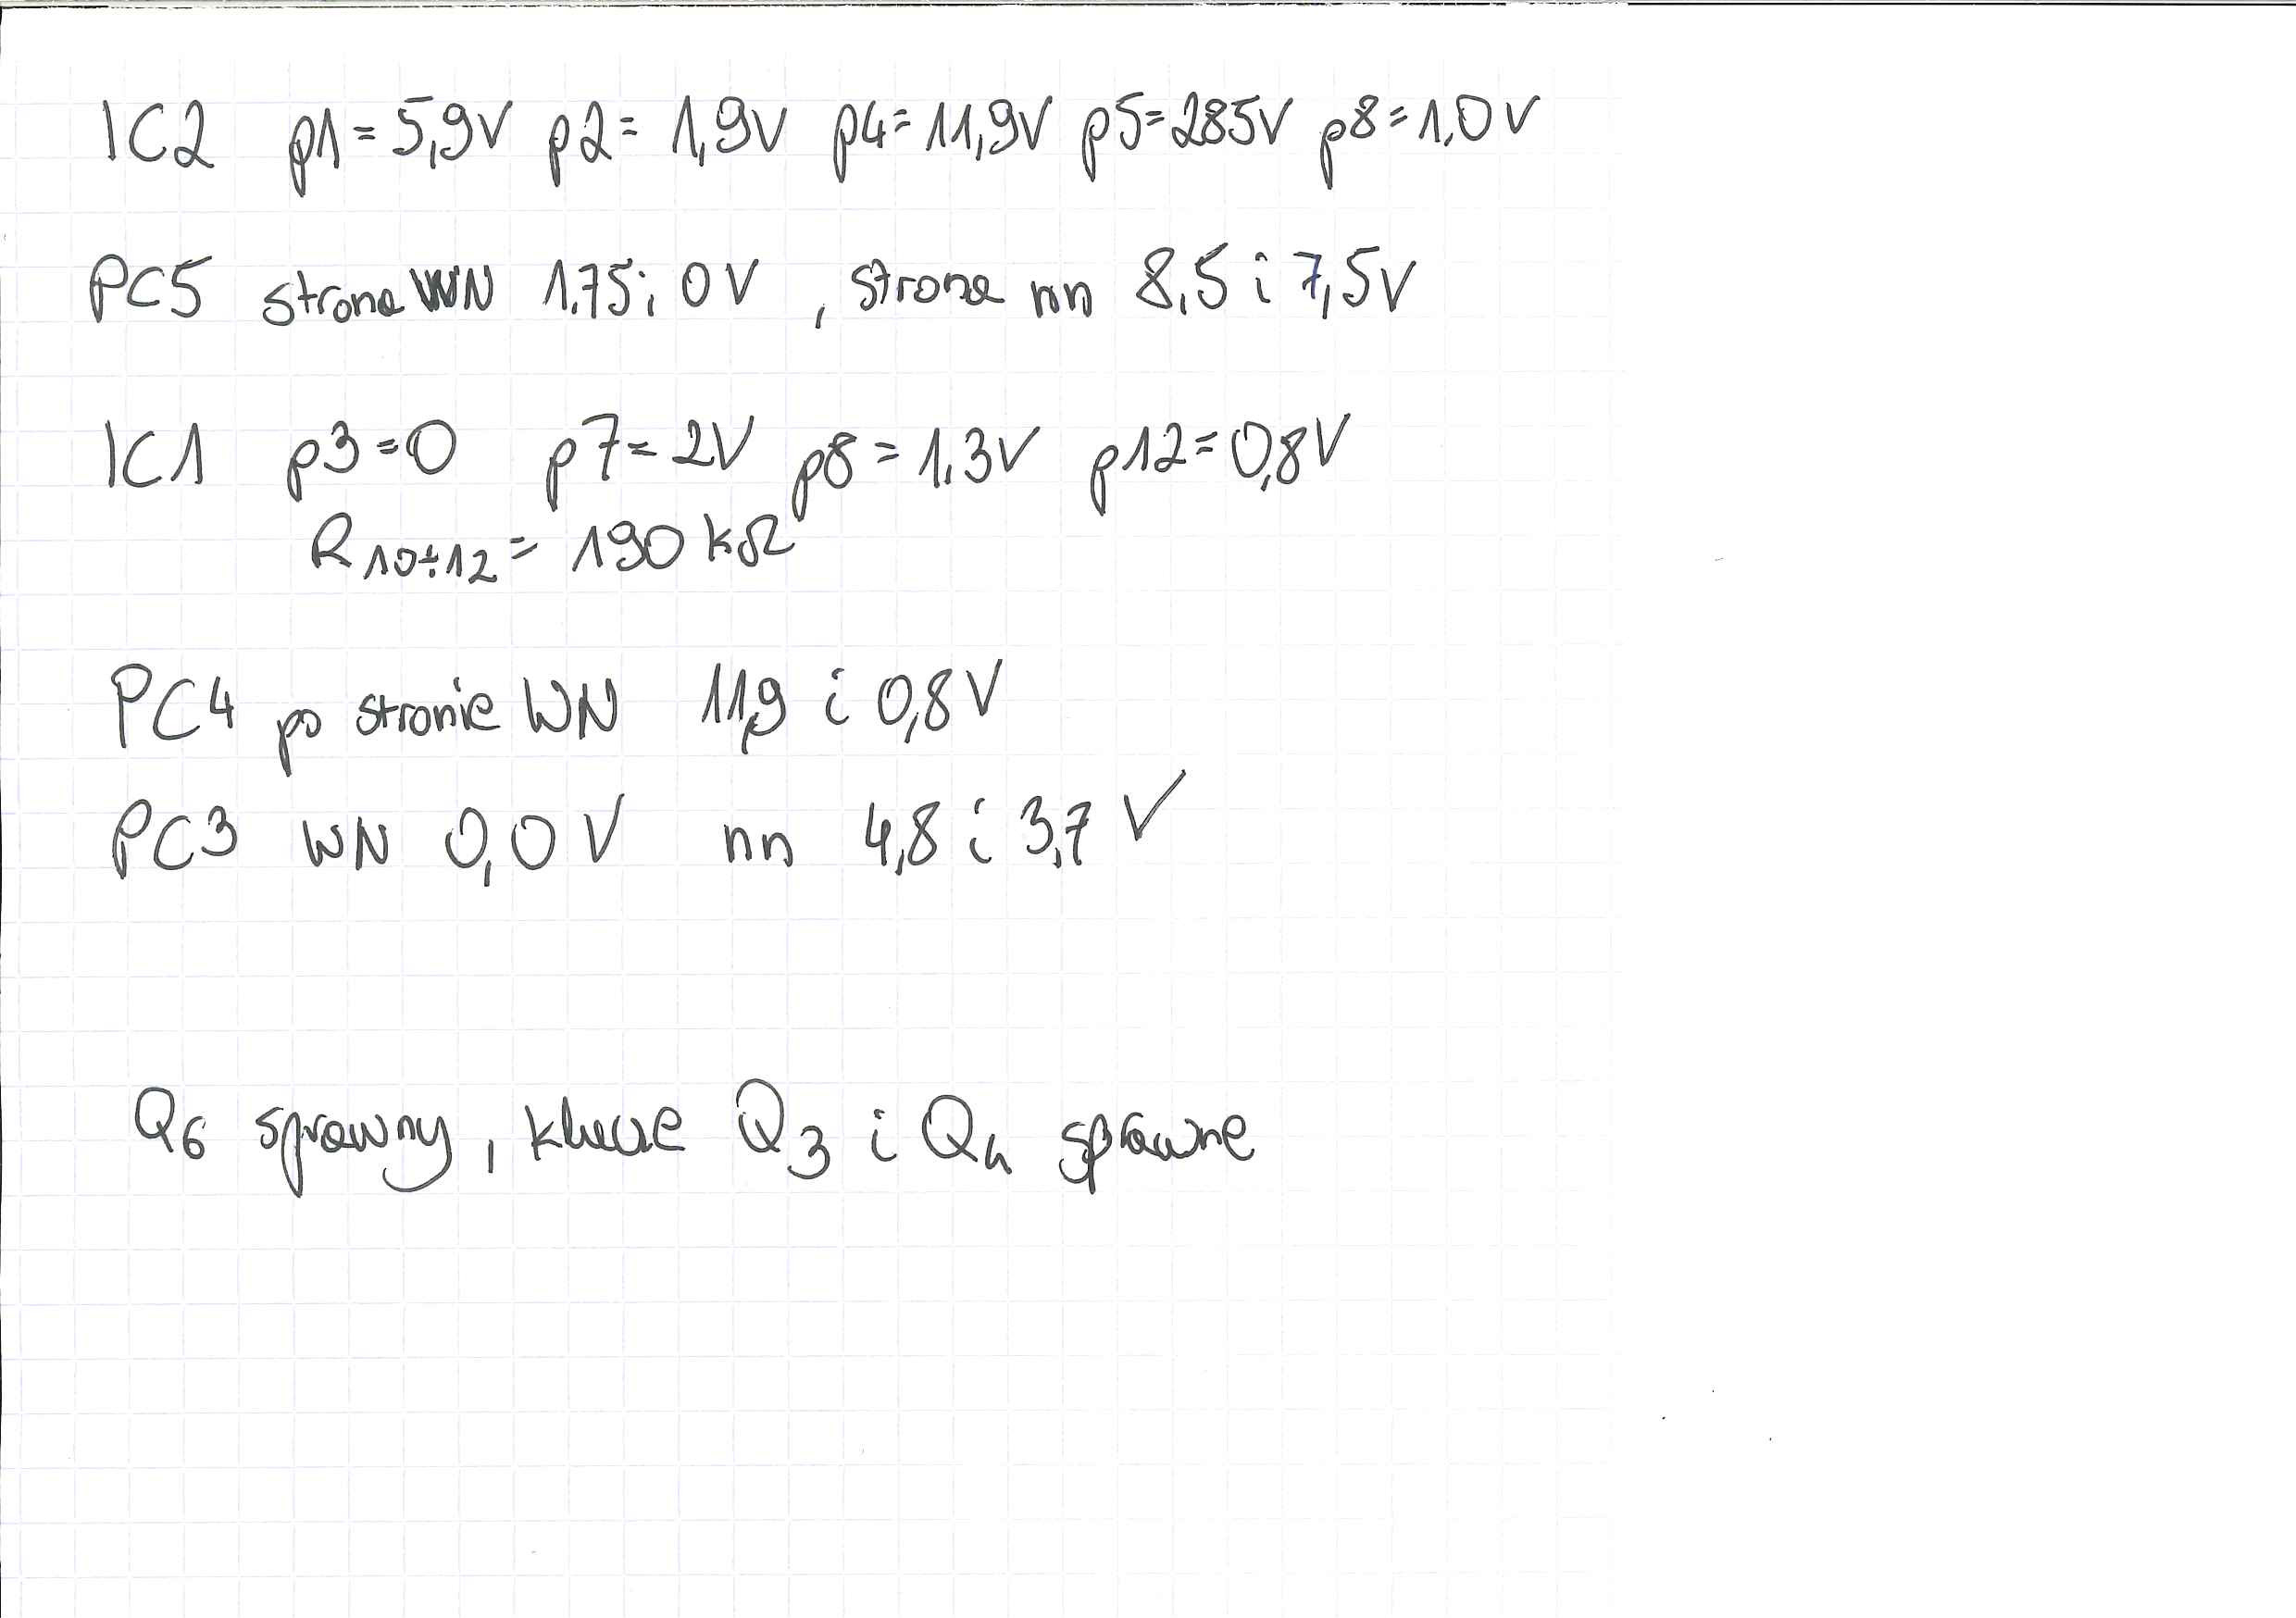 IC2 p1=5,9V p2=1,9V p4=11,9V p5=285V p8=1.0V
PC5 strona WN 1.75 i 0V , strona nn 8,5 i 7,5V
IC1 p3=0 p7=2V p8=1.3V p12=0,8V
R10÷12=190kΩ
PC4 po stronie WN 11,9 i 0,8V
PC3 WN 0,0V nn 4,8 i 3,7V
Q6 sprawny, klucze Q3 i Q4 sprawne